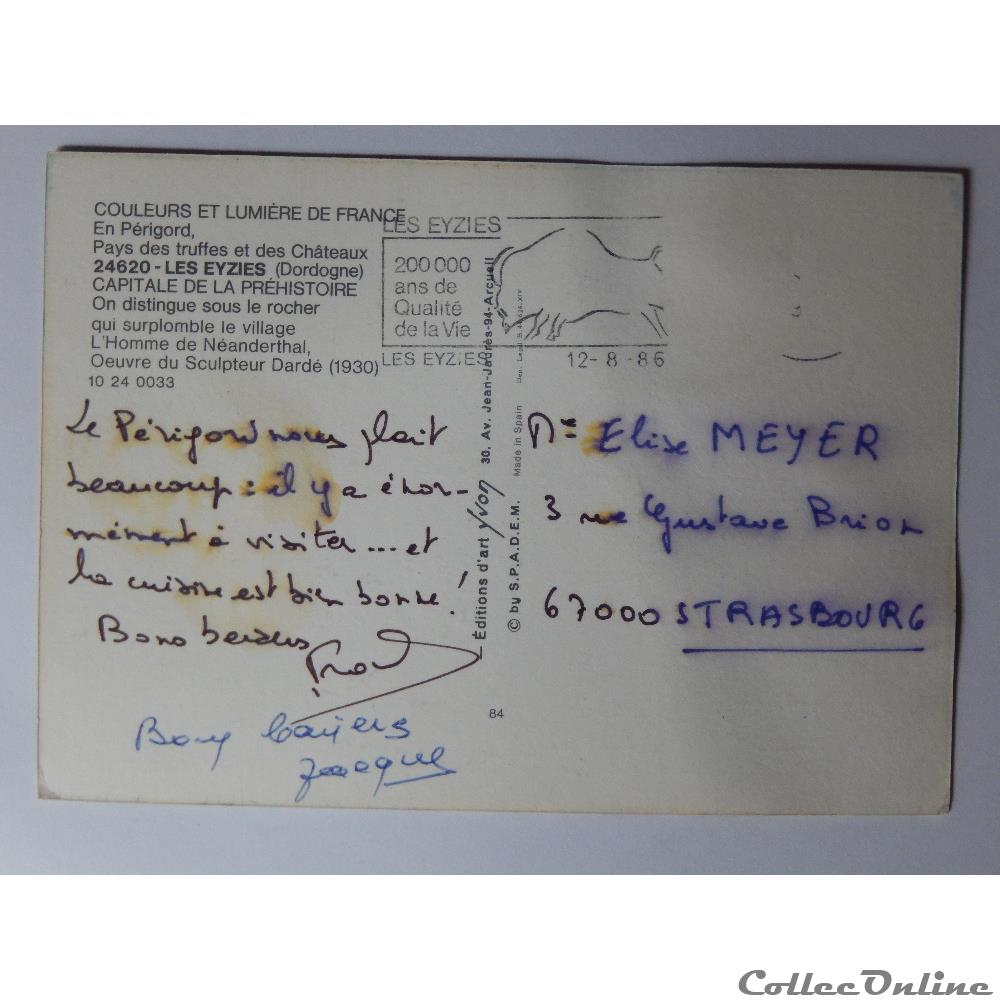 COULEURS ET LUMIÈRE DE FRANCE
En Périgord,
Pays des truffes et des Châteaux
24620 - LES EYZIES (Dordogne)
CAPITALE DE LA PRÉHISTOIRE
On distingue sous le rocher
qui surplombe le village
L'Homme de Néanderthal,
Oeuvre du Sculpteur Dardé (1930)
10 24 0033
LES EYZIES
200 000
ans de
Qualité
de la Vie
LES EYZIES
12-8-86
Le Périgord nous plait
beaucoup : il y a énor-
mément à visiter... et
la cuisine est bien bonne !
Bons baisers
Bons baisers
Jacques
Éditions d'art yvon 30. Av. Jean-Jaurès-94-Arcueil
© by S.P.A.D.E.M. Made in Spain
84
Me Elise MEYER
3 rue Gustave Brion
67000 STRASBOURG
CollecOnline